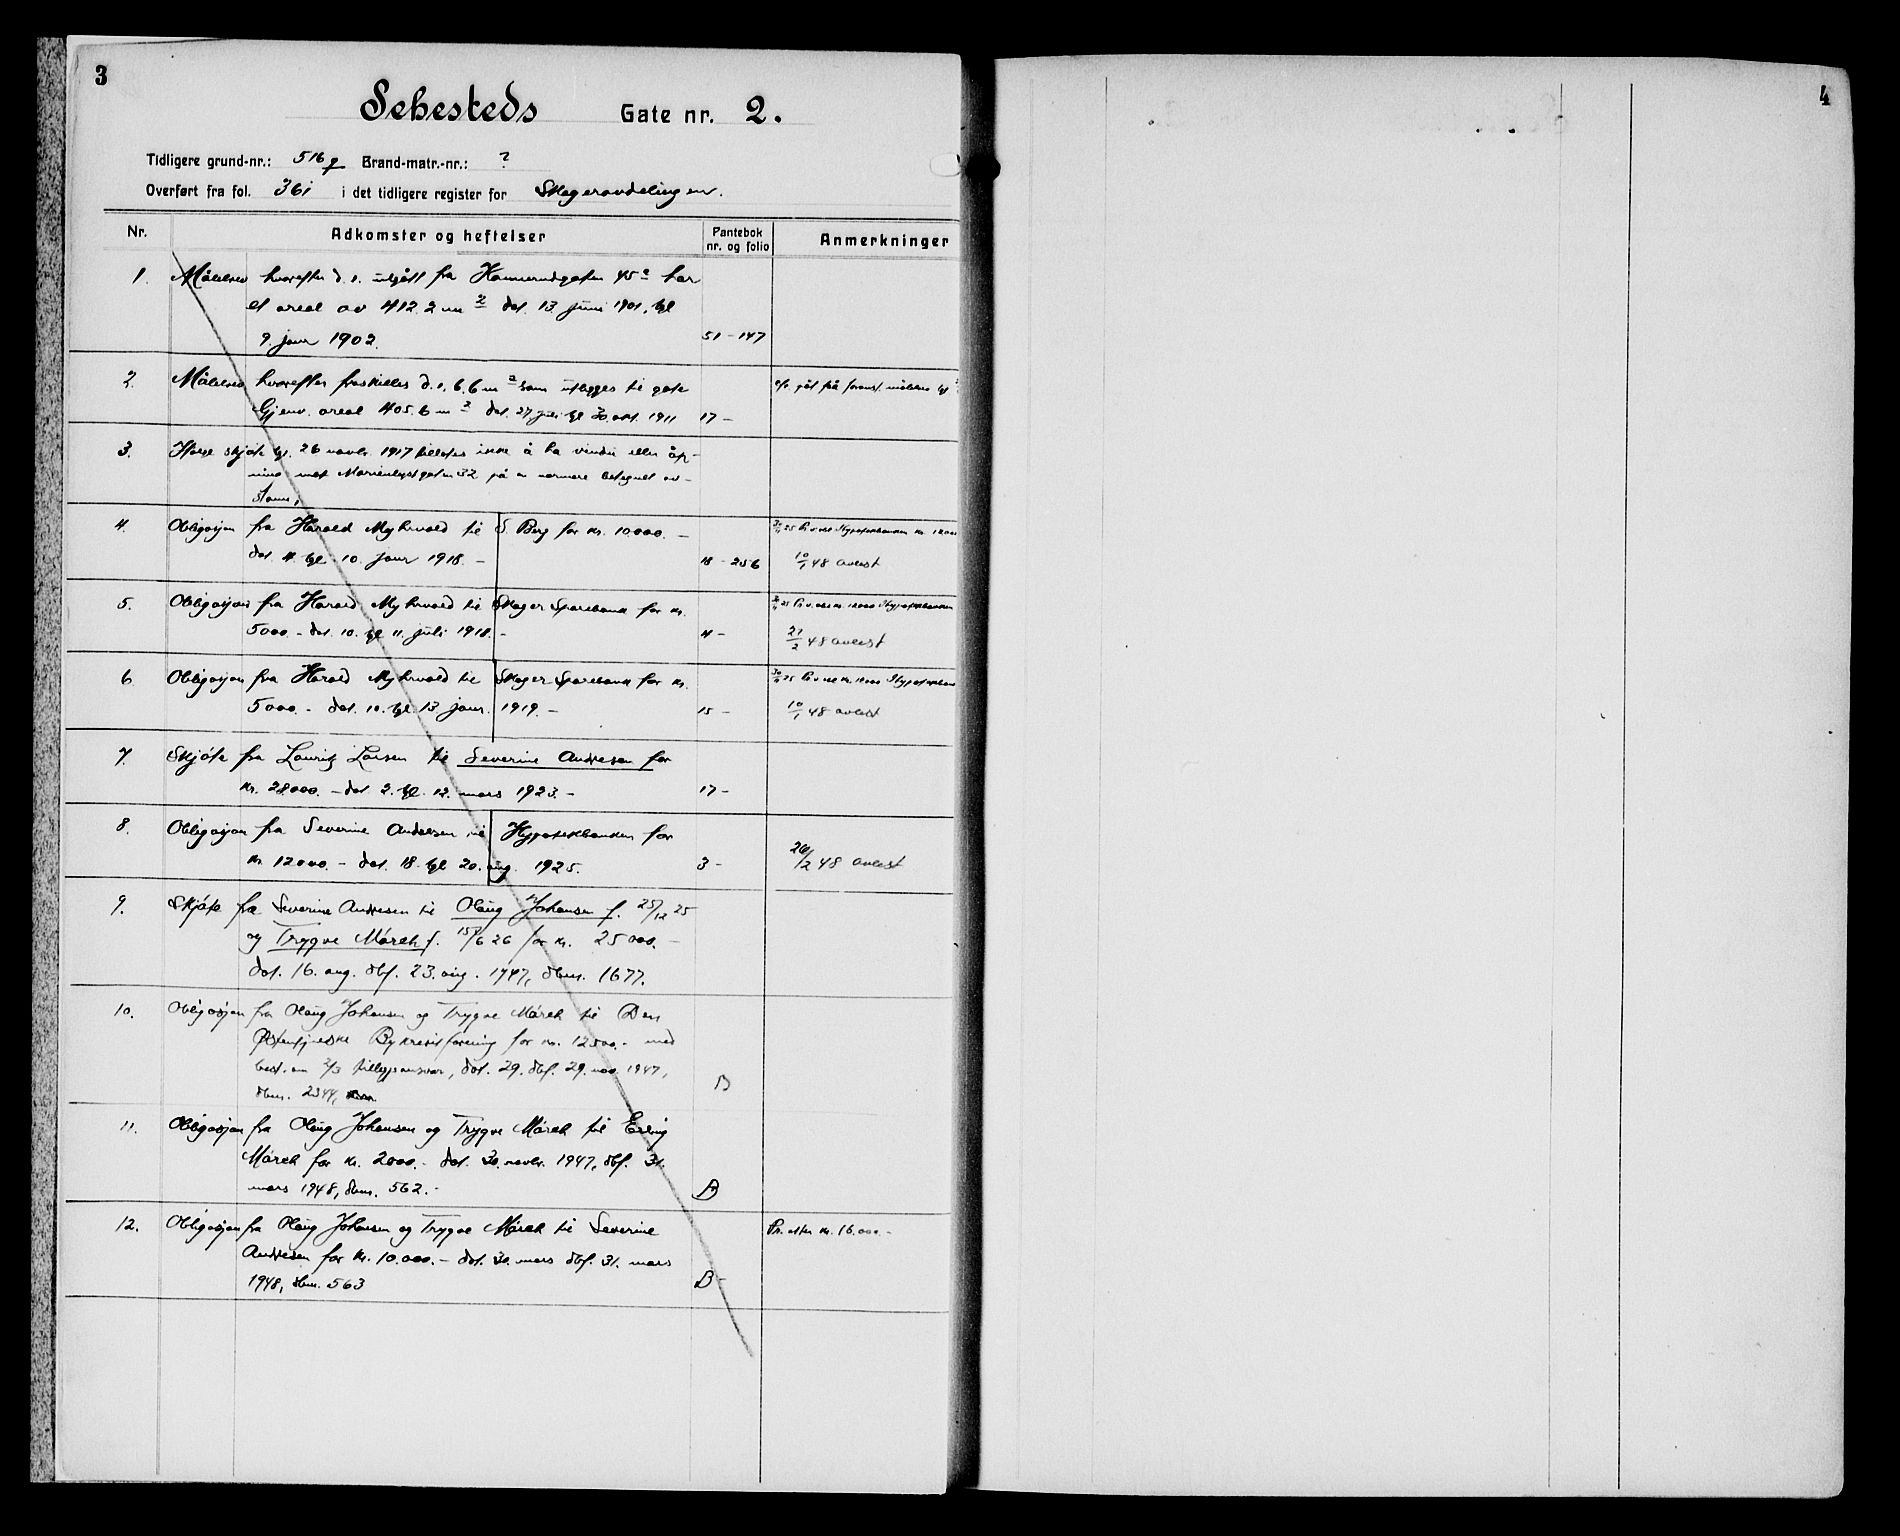 3
Sehesteds Gate nr. 2.
Tidligere grund-nr.: 516g Brand-matr.-nr.: ?
Overført fra fol. 361 i det tidligere register for Skogeravdelingen.
Nr. Adkomster og heftelser Pantebok nr. og folio Anmerkninger
1. Målebrev hvorefter d. e. utgått fra 45a har
et areal av 412.2 m2 dat. 13 juni 1901, tgl
9. janr 1902. 51-147
2. Målebrev hvorefter fraskilles d. e. 6.6 m2 som utlegges til gate
Gjenv. areal 405.6 m2 dat. 27 juli tgl 30. okt. 1911 17-
3. skjøte tgl. 26 novbr. 1917 tillates ikke å ha vindu eller åp-
ning mot Marienlystgaten 32 på en nermere betegnet av-
stann,
4. Obligasjon fra Harald Myhrvold til S Berg for kr. 10.000. -
dat. 4. tgl. 10. janr 1918. - 18-256
30/11 25 Pr. v. obl. Hypotekbanken kr. 12000
10/1 48 avlest
5. Obligasjon fra Harald Myhrvold til Skoger Sparebank for kr.
5000. - dat. 10. tgl 11. juli 1918. - 4-
30/11 25 Pr. v. obl. kr. 12000 Hypotekbanken
27/2 48 avlest
6 Obligasjon fra Harald Myhrvold til Skoger Sparebank for kr.
5000. - dat. 10. tgl. 13 janr. 1919. - 15-
30/11 25 Pr. v. obl. kr. 12000
10/1 48 avlest
7. Skjøte fra Lauritz Larsen til Severine Andresen for
kr. 28.000. - dat. 2. tgl. 12. mars 1923. - 17-
8. Obligasjon fra Severine Andresen til Hypotekbanken for
kr. 12000. - dat. 18. tgl 20. aug. 1925. 3-
26/2 48 avlest
9. Skjøte fra Severine Andresen til Olaug Johansen f. 25/12 25
og Trygve Mørch f. 15/6 26 for kr. 25000. -
dat. 16. aug. dbf. 23. aug. 1947, dbnr. 1677.
10. Obligasjon fra Olaug Johansen og Trygve Mørch til Den
Østenfjelske Bykredittforening for kr. 12500. - med
best. om 2/3 tilleggsansvar, dat. 29. dbf. 29. nov. 1947,
dbnr. 2344, B
11. Obligasjon fra Olaug Johansen og Trygve Mørch til Erling
Mørch for kr. 2000. - dat. 30. novbr. 1947, dbf. 31.
mars 1948, dbnr. 562. - B
12. Obligasjon fra Olaug Johansen og Trygve Mørch til Severine
Andresen for kr. 10.000. - dat. 30. mars dbf. 31. mars
1948, dbnr. 563 B-
Pr. etter kr. 16.000. -
4